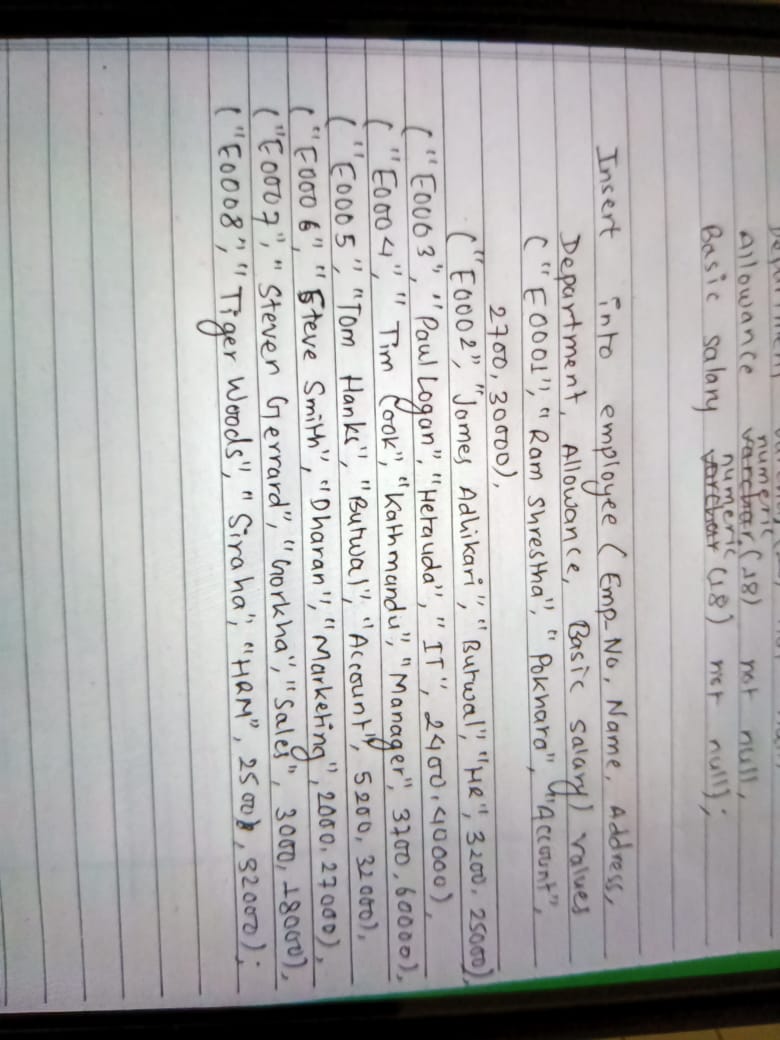 Allowance varchar numeric (18) not null,
Basic salary varchar numeric (18) not null);
Insert into employee (Emp_No, Name, Address,
Department, Allowance, Basic salary) values
("E0001", "Ram Shrestha", "Pokhara", "Account",
2700, 30000),
("E0002", "James Adhikari", "Butwal", "HR", 3200, 25000),
("E0003", "Paul Logan", "Hetauda", "IT", 2400, 40000),
("E0004", "Tim Cook", "Kathmandu", "Manager", 3700, 60000),
("E0005", "Tom Hanks", "Butwal", "Account", 5200, 32000),
("E0006", "Steve Smith", "Dharan", "Marketing", 2000, 27000),
("E0007", "Steven Gerrard", "Gorkha", "Sales", 3000, 18000),
("E0008", "Tiger Woods", "Siraha", "HRM", 2500, 32000);